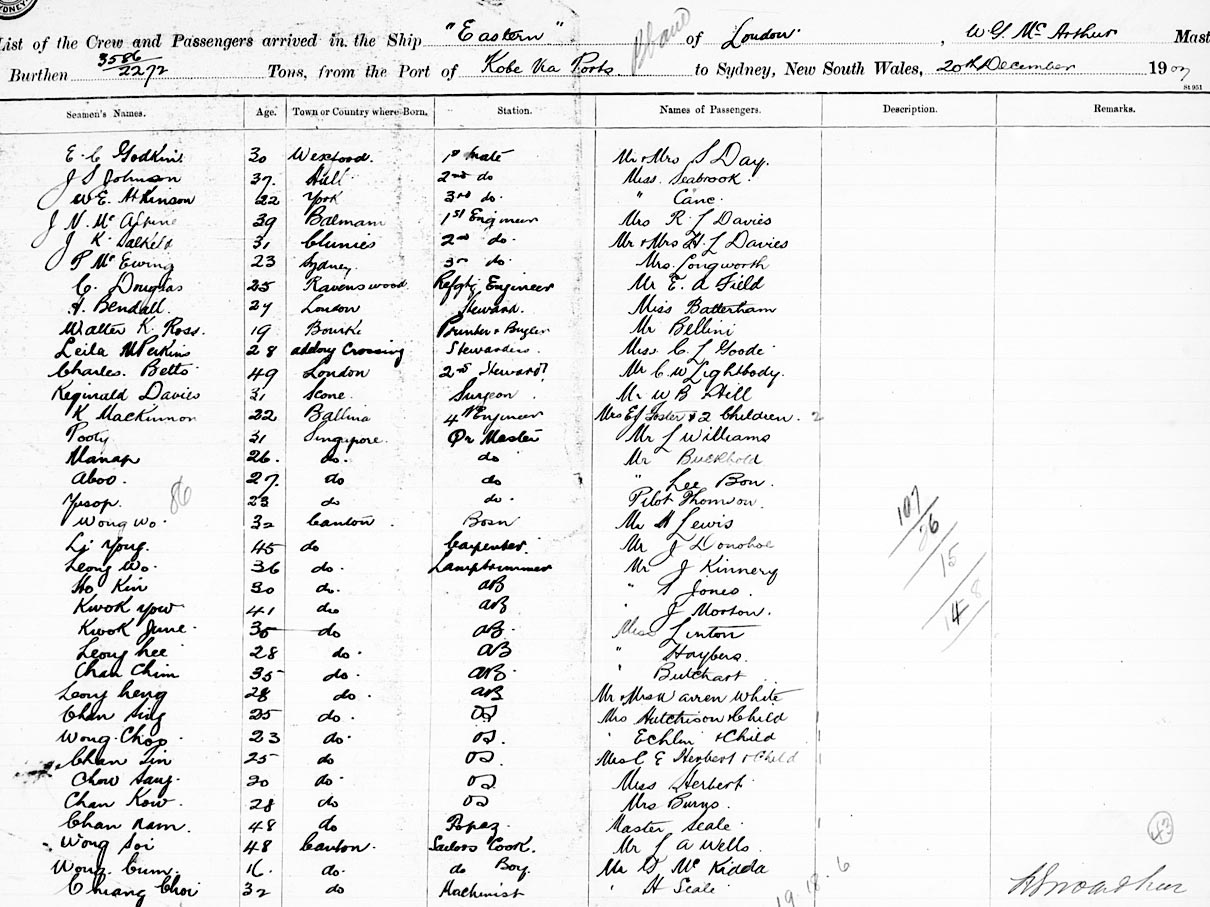 SYDNEY
List of the Crew and Passengers arrived in the Ship "Eastern" of London, W G Mc Arthur Mast
Burthen 3586/2272 Tons, from the Port of Kobe Via Ports to Sydney, New South Wales, 20th December 1907
St 951
Seamen's Names. Age. Town or Country where Born. Station. Names of Passengers. Description. Remarks.
E. C Godkin 30 Wexford. 1st Mate Mr & Mrs S Day.
J S Johnson 37. Hull 2nd do Miss. Seabrook.
W E. Atkinson 22 York 3rd do. " Cane.
J N. Mc Alpine 39 Balmain 1st Engineer Mrs R L Davies
J K. 31 Clunies 2nd do. Mr & Mrs H. L Davies
P Mc Ewing 23 Sydney. 3rd do. Mrs. Longworth
C. Douglas 25 Ravenswood Refgtg Engineer Mr E. A Field
A. Bendall. 27 London Steward. Miss Batterham
Walter K. Ross. 19 Bourke Printer & Bugler Mr Bellini
Leila M Perkins 28 Crossing Stewardess. Miss C. L Goode
Charles. Betts 49 London 2nd Steward Mr C W Lightbody.
Reginald Davies 31 Scone. Surgeon. Mr W B Hill
K MacKinnon 22 Ballina 4th Engineer Mrs E J Foster & 2 Children. 2
Pooty 31 Singapore. Qr Master Mr L Williams
Manap 26. do. do Mr Buckhold
Aboo. 27. do do " Lee Bon.
Yusop. 23 do do. Pilot Thomson.
86
Wong Wo. 32 Canton. Bosn Mr H Lewis
Li Yong. 45 do Carpenter. Mr J Donohoe
Leong Wo. 36 do. Lamptrimmer Mr J Kinnery
Ho Kin 30 do. AB " Jones.
Kwok Yow 41 do AB " J Morton.
Kwok June 35 do AB. Miss Linton
Leong hee 28 do. AB "
Chan Chim 35 do. AB. " Butchart
Leong heng 28 do. AB Mr & Mrs Warren White
Chan Sing 25 do. OS Mrs Hutchison & Child 1
Wong Chop 23 do. OS. " Echlin & Child 1
Chan Lin 25 do OS. Mrs C E Herbert & Child 1
Chow Sang. 30 do. OS Miss Herbert.
Chan Kow. 28 do OS Mrs Burns.
Chan Nam. 48 do Master Scale. 1
Wong Soi 48 Canton. Sailors Cook. Mr L A Wells.
Wong. Cum. 16. do. do Boy. Mr D Mc Kidda
Chiang Choi 32 do Machinist " H Scale
107
86
15
14 8
43
19. 18. 6